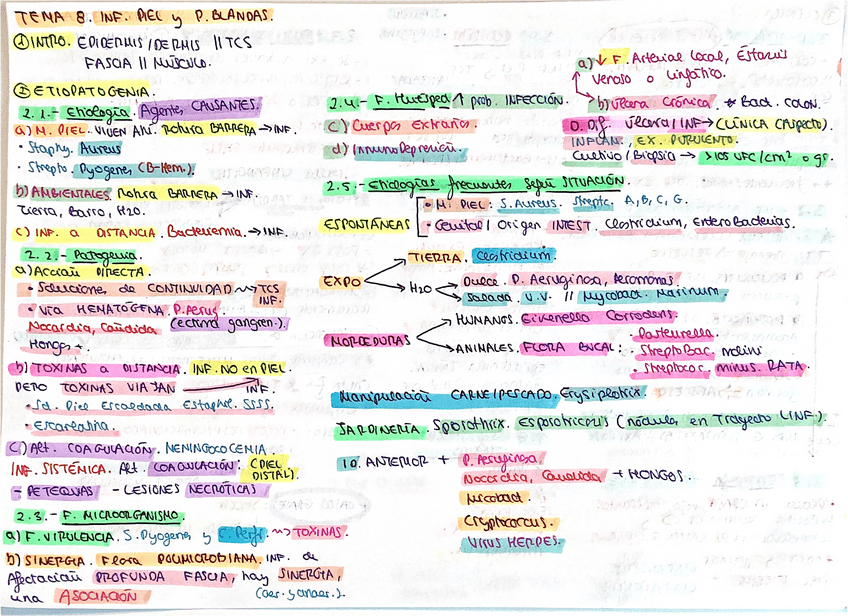 TEMA 8. INF. PIEL y P. BLANDAS.
① INTRO. EPIDERMIS/DERMIS || TCS
FASCIA || MÚSCULO.
② ETIOPATOGENIA.
2.1.- Etiología. Agentes CAUSANTES.
a) M. PIEL. VIVEN Ahí. Rotura BARRERA → INF.
• Staphy. Aureus
• Strepto. Pyogenes (B-Hem.).
b) AMBIENTALES. Rotura BARRERA → INF.
Tierra, Barro, H2O.
c) INF. a DISTANCIA. Bacteriemia. → INF.
2.2.- Patogenia.
a) Acción DIRECTA.
• Soluciones de CONTINUIDAD ~> TCS INF.
• Vía HEMATÓGENA. P. Aerug
Nocardia, Candida (ectima gangren.).
Hongos +.
b) TOXINAS a DISTANCIA. INF. NO en PIEL
pero TOXINAS VIAJAN → INF.
• Sd. Piel Escaldada Estaphil. SSSS.
• Escarlatina.
c) Alt. COAGULACIÓN. MENINGOCOCEMIA.
INF. SISTÉMICA. Alt. COAGULACIÓN: (PIEL DISTAL).
- PETEQUIAS - LESIONES NECRÓTICAS
2.3.- F. MICROORGANISMO
a) F. VIRULENCIA. S. Pyogenes y C. Perfr. ~> TOXINAS.
b) SINERGIA. Flora POLIMICROBIANA. INF. de
Afectación PROFUNDA FASCIA, hay SINERGIA,
una ASOCIACIÓN (aer. y anaer.).
2.4.- F. Huésped ↑ prob. INFECCIÓN.
a) ↓ F. Arterial local, Éstasis
venoso o linfático.
b) Úlcera Crónica. * Bact. COLON.
D. Dif. Úlcera / INF → (CLÍNICA (Aspecto).
INFLAM., EX. PURULENTO.
Cultivo/Biopsia → >105 UFC/cm2 o gr.
c) Cuerpos Extraños.
d) InmunoDepresión.
2.5.- Etiologías frecuentes según SITUACIÓN.
ESPONTÁNEAS
• M. PIEL: S. Aureus. Strepto. A, B, C, G.
• Genital / Origen INTEST. Clostridium, Enterobacterias.
EXPO
TIERRA. Clostridium.
H2O
Dulce. P. Aeruginosa, Aeromonas.
Salada. V.V. // Mycobact. Marinum.
MORDEDURAS
HUMANOS. Eikenella Corrodens.
ANIMALES. FLORA BUCAL:
• Pasteurella.
• StreptoBac. moline
• Streptococ. minus. RATA.
Manipulación CARNE/PESCADO. Erysipelotrix.
JARDINERÍA. Sporothrix. Esporotricosis (nódulos en Trayecto LINF.).
ID. ANTERIOR +
P. Aeruginosa
Nocardia, Candida + HONGOS.
Micobact.
Cryptococcus.
VIRUS HERPES.